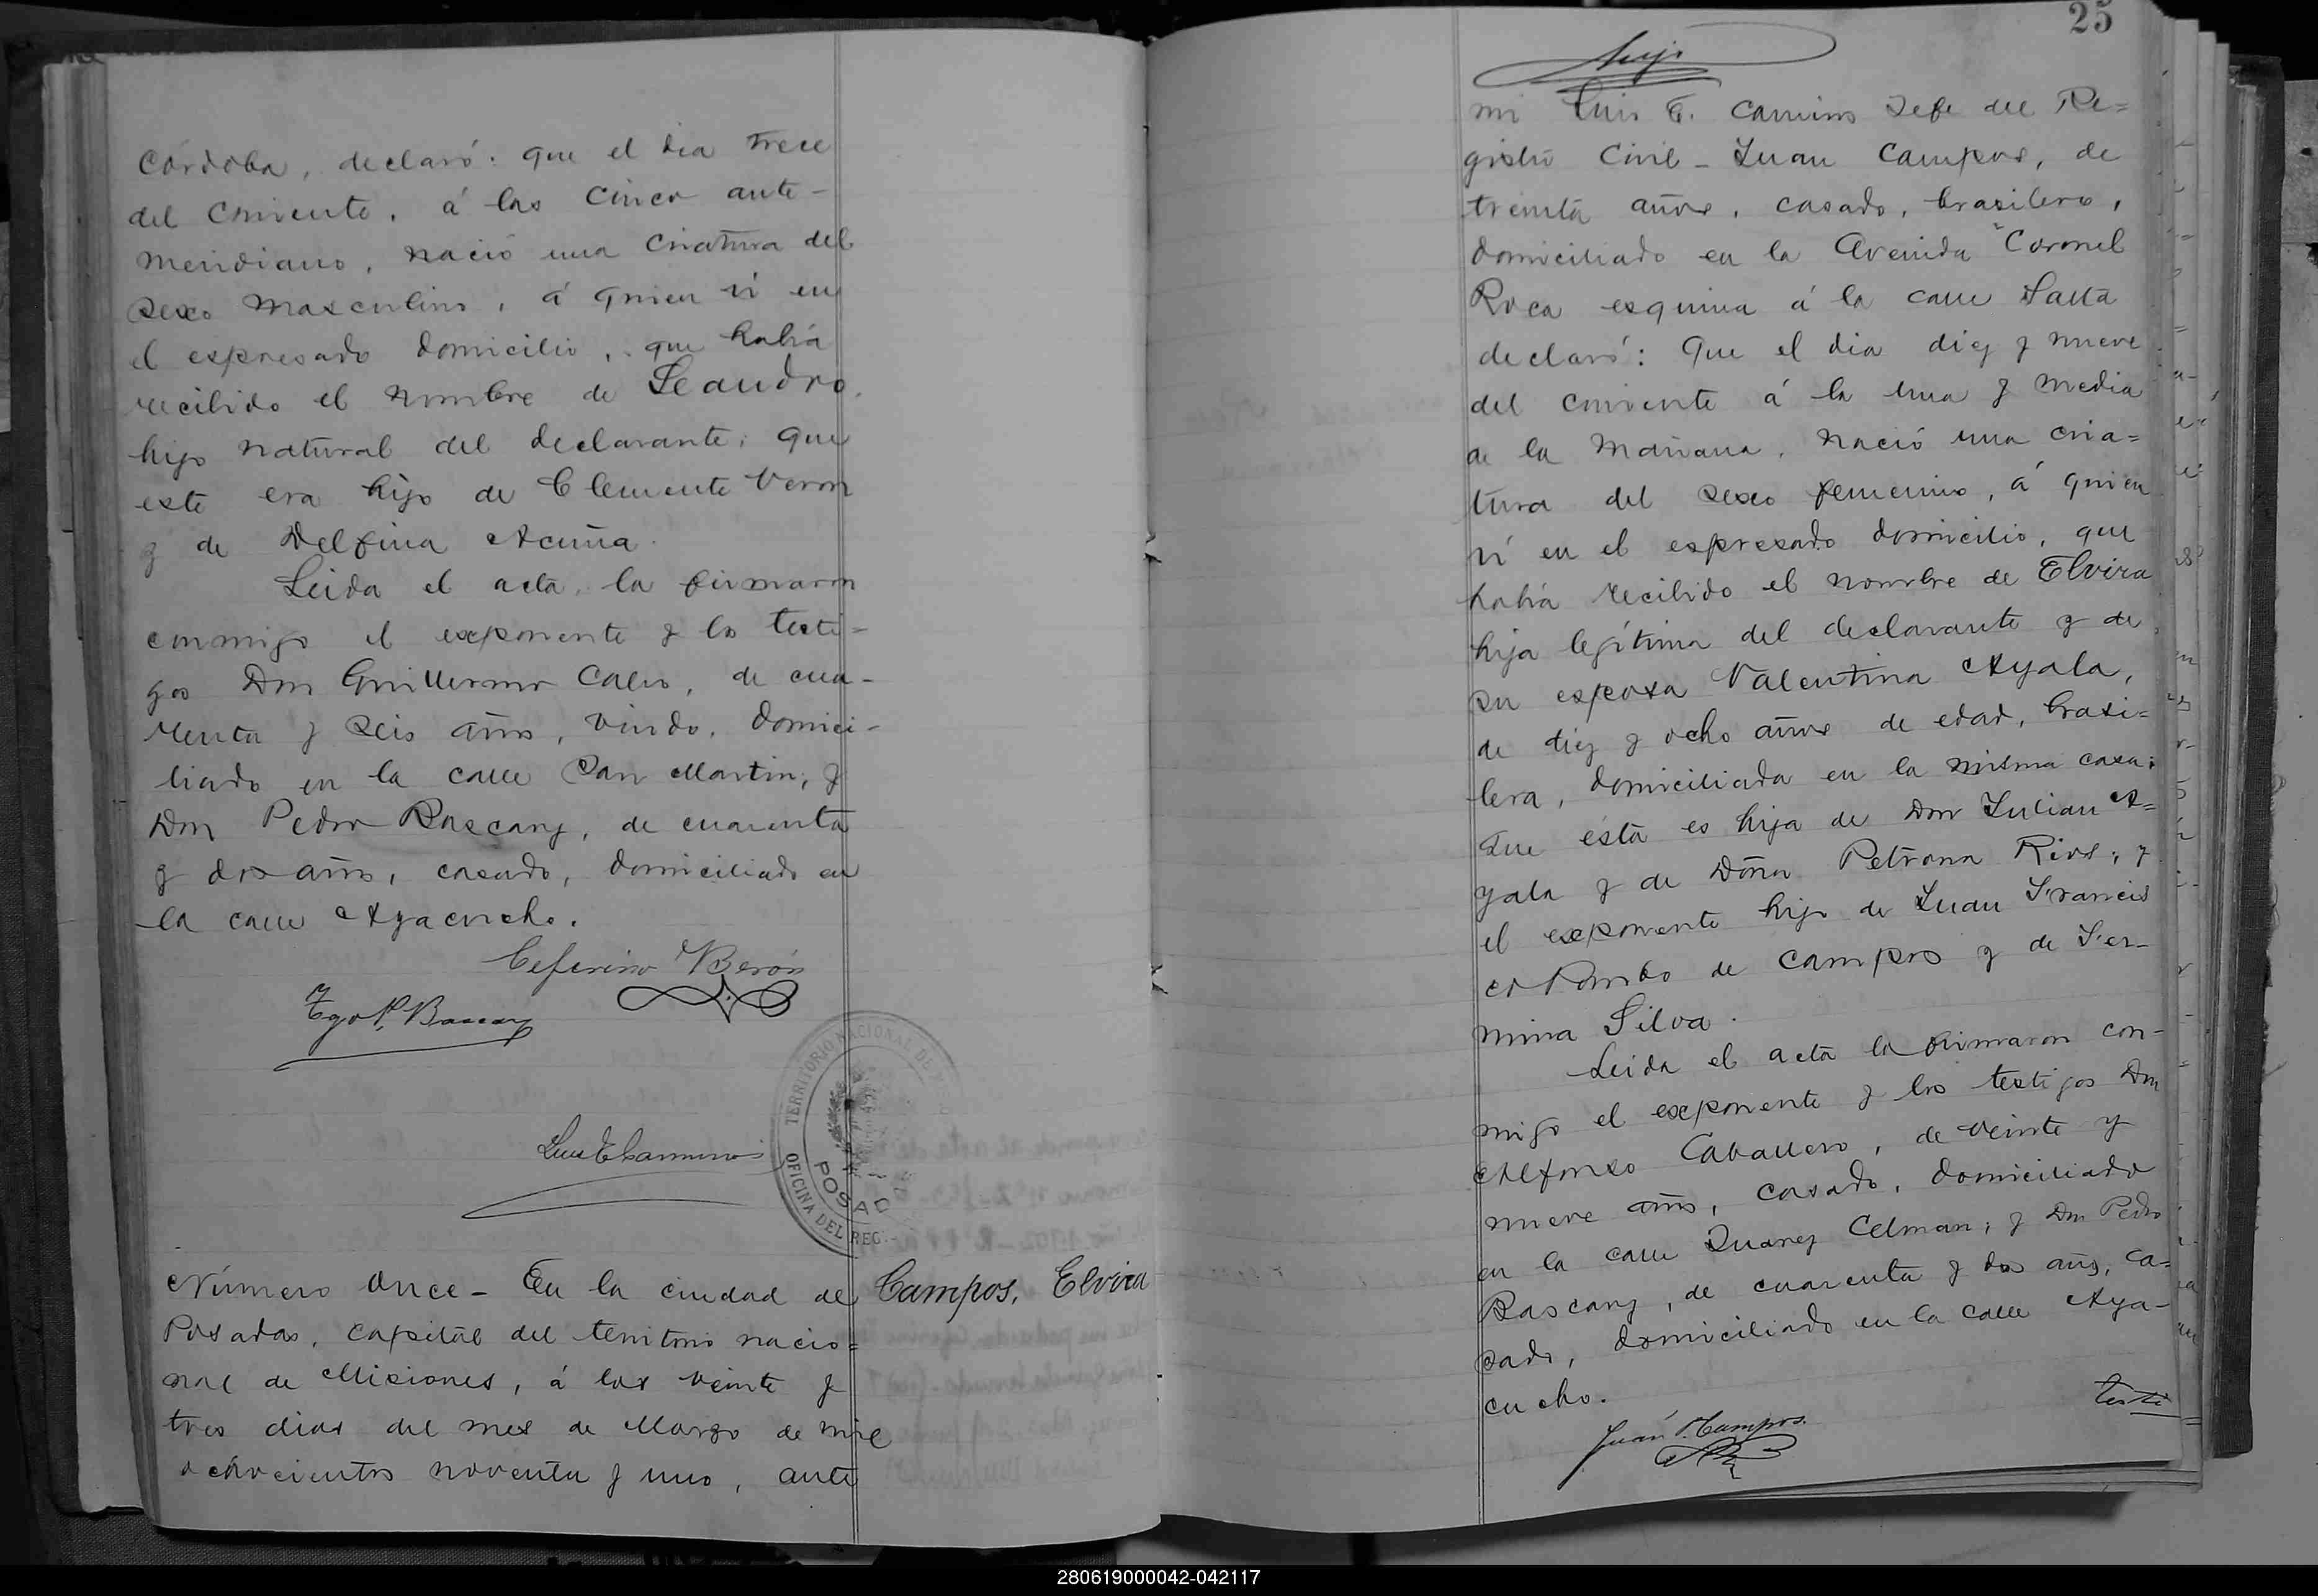 Córdoba, declaró: que el dia trece
del corriente, á las cinco ante-
meridiano, nació una criatura del
sexo masculino, á quien ví en
el espresado domicilio, que había
recibido el nombre de Leandro,
hijo natural del declarante; que
este era hijo de Clemente Veron
y de Delfina Acuña.
Leida el acta, la firmaron
conmigo el exponente y los testi=
gos Don Guillermo Calvo, de cua-
renta y seis años, viudo, domici-
liado en la calle San Martin; y
Don Pedro Bascary, de cuarenta
y dos años, casado, domiciliado en
la calle Ayacucho.
Ceferino Berón
Tgo P. Bascary
Luis E Camino
TERRITORIO NACIONAL DE
OFICINA DEL REG.
POSAD
Número Once - En la ciudad de
Campos, Elvira
Posadas, capital del territorio nacio=
nal de Misiones, á los veinte y
tres dias del mes de Marzo de mil
ochocientos noventa y uno, ante
25
mi Luis E. Camino Jefe del Re=
gistro Civil - Juan Campos, de
treinta años, casado, brasilero,
domiciliado en la Avenida Coronel
Roca esquina á la calle Salta
declaró: Que el dia diez y nueve
del corriente á la una y media
de la mañana, nació una cria=
tura del sexo femenino, á quien
ví en el espresado domicilio, que
había recibido el nombre de Elvira
hija legítima del declarante y de
su esposa Valentina Ayala,
de diez y ocho años de edad, brasi=
lera, domiciliada en la misma casa;
que ésta es hija de Don Julian A=
yala y de Doña Petrona Rios; y
el exponente hijo de Juan Francis
co Pombo de Campos y de Fer-
mina Silva.
Leida el acta la firmaron con-
migo el exponente y los testigos Don
Alfonso Caballero, de veinte y
nueve años, casado, domiciliado
en la calle Juarez Celman; y Don Pedro
Bascary, de cuarenta y dos años, ca=
sado, domiciliado en la calle Aya-
cucho.
testi
Juan P. Campos.
280619000042-042117